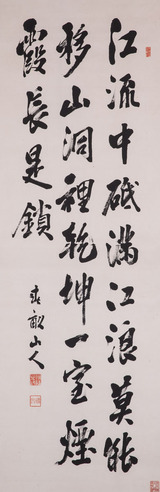 江流中砥滿江浪莫能
移山洞裡乾坤一室煙
霞長是鎖
山人